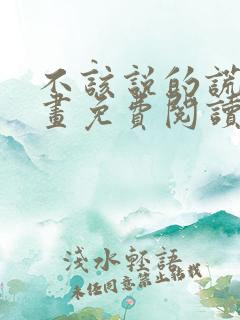 不該說的謊
畫免費閱讀
淺水輕語
未經同意禁止轉載